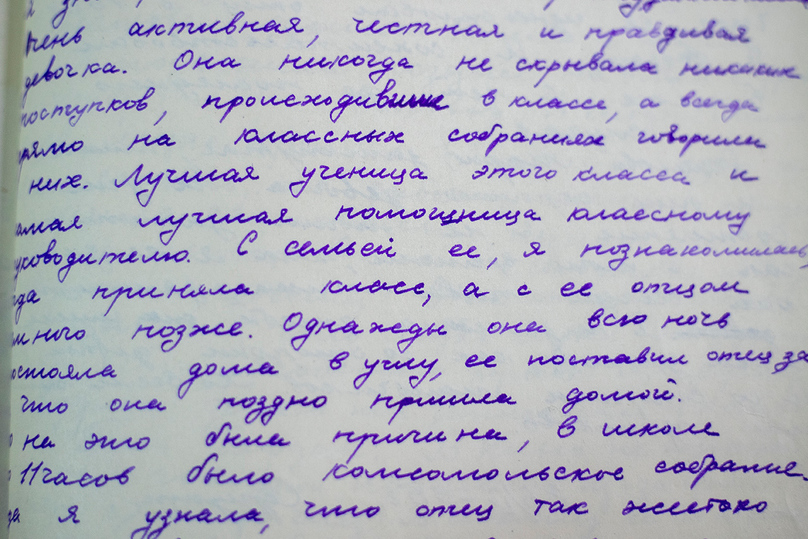 очень активная, честная и правдивая
девочка. Она никогда не скрывала никаких
поступков, происходивших в классе, а всегда
прямо на классных собраниях говорила
них. Лучшая ученица этого класса и
амая лучшая помощница классному
уководителю. С семьей ее, я познакомилась,
гда приняла класс, а с ее отцом
много позже. Однажды она всю ночь
остояла дома в углу, ее поставил отец за
что она поздно пришла домой.
о на это была причина, в школе
11 часов было комсомольское собрание.
да я узнала, что отец так жестоко